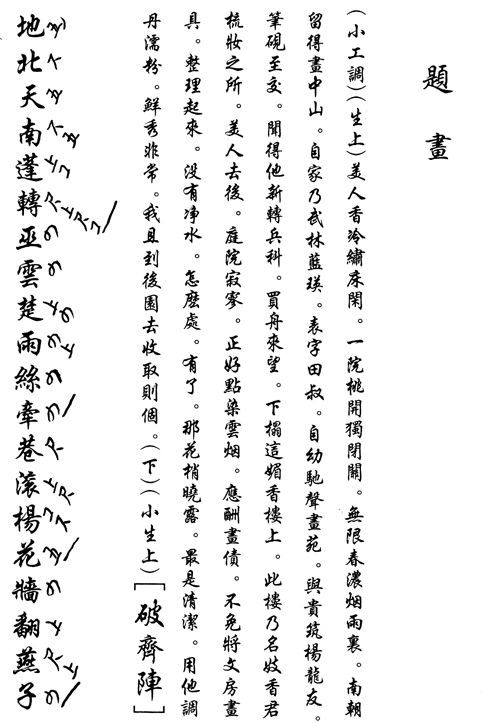 題畫
(小工調)(生上)美人香冷繡床閑。一院桃開獨閉關。無限春濃烟雨裏。南朝
留得畫中山。自家乃武林藍瑛。表字田叔。自幼馳聲畫苑。與貴筑楊龍友。
筆硯至交。聞得他新轉兵科。買舟來望。下榻這媚香樓上。此樓乃名妓香君
梳妝之所。美人去後。庭院寂寥。正好點染雲烟。應酬畫債。不免將文房畫
具。整理起來。没有净水。怎麽處。有了。那花梢曉露。最是清潔。用他調
丹濡粉。鮮秀非常。我且到後園去收取則個。(下)(小生上)[破齊陣]
地北天南蓬轉巫雲楚雨絲牽巷滚楊花牆翻燕子